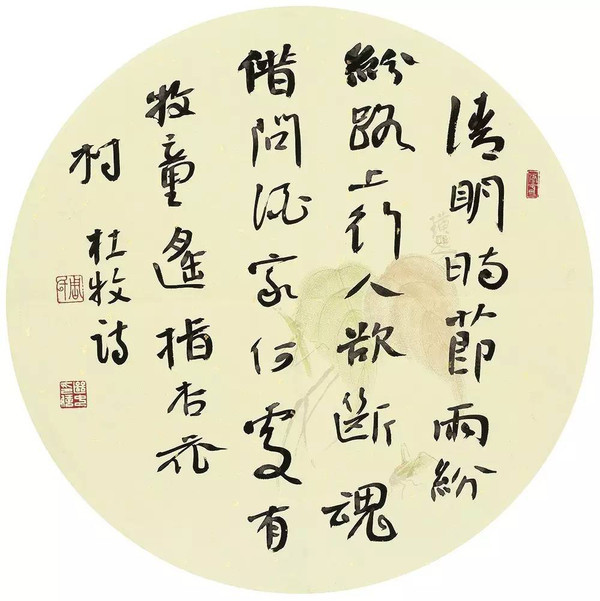 清明時節雨紛
紛路上行人欲斷魂
借問酒家何處有
牧童遙指杏花
村
杜牧詩